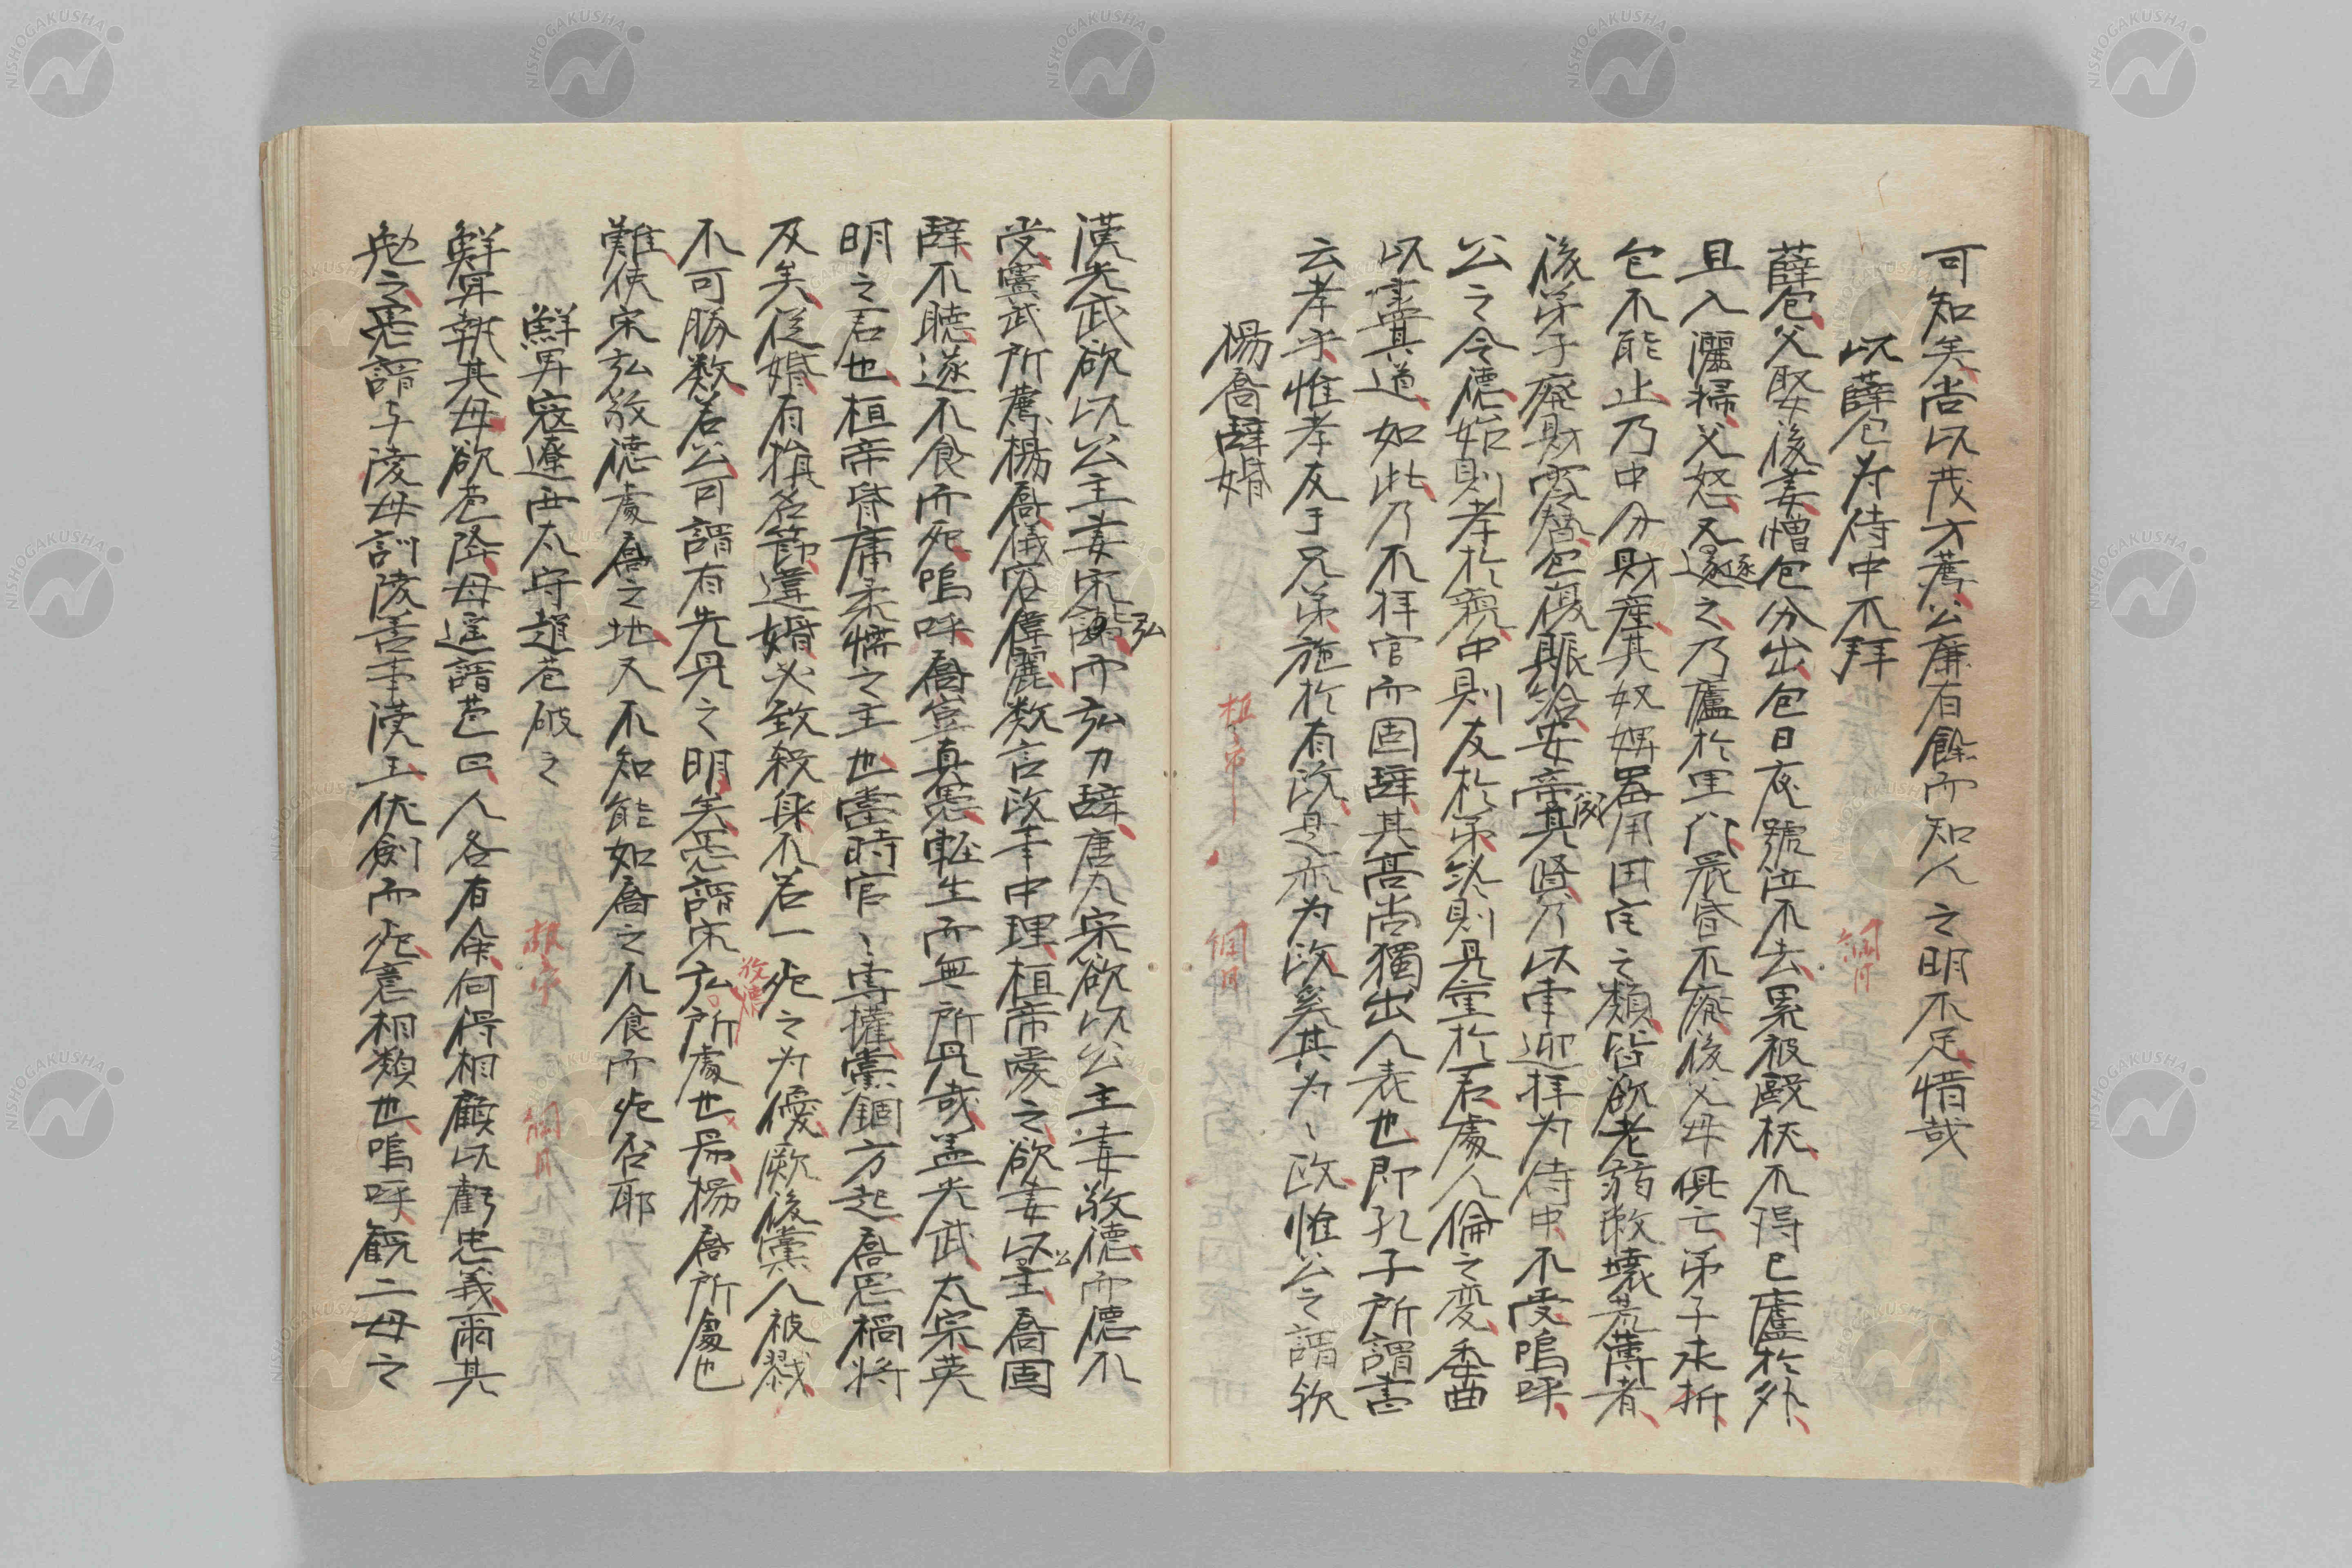 可知矣尚以茂才薦公廉有餘而知人之明不足惜哉
以薛包為侍中不拜 綱目
薛包父娶後妻憎包分出包日夜號泣不去累被毆杖不得已廬於外
且入灑掃父怒又逐之乃廬於里門晨昏不廢後父母俱亡弟子求折
包不能止乃中分財産其奴婢器用田宅之類皆欲老弱敝壊荒薄者
後弟子廃財零替包復賑給安帝聞其賢乃以車迎拝為侍中不受嗚呼
公之令德始則孝於親中則友於弟終則見重於君處人倫之変委曲
以盡其道如此乃不拝官而固辞其高尚獨出人表也即孔子所謂書
云孝乎惟孝友于兄弟施於有政是亦為政奚其為〻政惟公之謂欤
楊喬辞婚 桓帝 綱目
漢光武欲以公主妻宋弘而弘力辞唐太宗欲以公主妻敬德而德不
受竇武所薦楊喬儀容偉麗数言政事中理桓帝愛之欲妻以公主喬固
辞不聴遂不食而死嗚呼喬豈真愚軽生而無所見哉盖光武太宗英
明之君也桓帝昏庸柔懦之主也當時宦〻専權黨錮方起喬思禍将
及矣從婚有損名節違婚必致殺身不若一死之为優厥後黨人被戮
不可勝数若公可謂有先見之明矣愚謂宋弘敬德所處也易楊喬所處也
難使宋弘敬德處喬之地又不知能如喬之不食而死否耶
鮮卑寇遼西太守趙苞破之 桓帝 綱目
鮮卑執其母欲苞降母遥謂苞曰人各有命何得相顧以虧忠義爾其
勉之愚謂与陵母訓陵善事漢王伏劍而死意相類也嗚呼観二母之